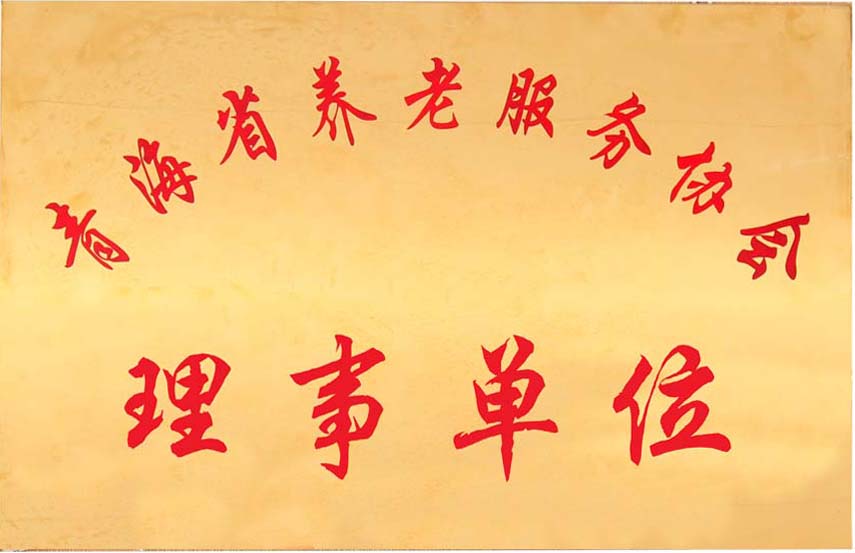 青海省养老服务协会
理事单位